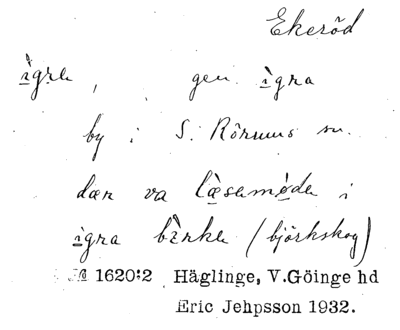 Ekeröd
ìgra, gen. ìgra
by i S. Rörums sn.
dær va læsemøde i
ìgra bìrka (björkskog)
M 1620:2 Häglinge, V.Göinge hd
Eric Jehpsson 1932.